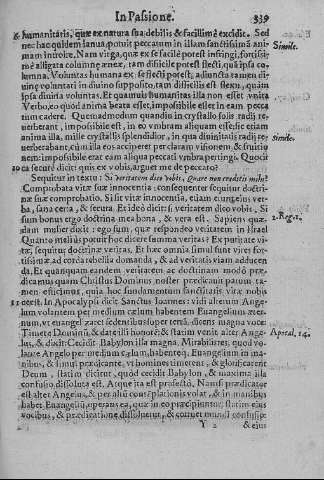 In Passione. 339
& humanitatis, quæ ex natura sua debilis & facillimè excidit. Sed
nec hac quidem ianua, potuit peccatum in illam sanctissimã ani-
mam introire. Nam virga, quæ ex se facilè potest infringi, fortissi-
mè alligata columnæ æneæ, tam difficile potest flecti, quã ipsa co-
lumna. Voluntas humana ex se flecti potest, adiuncta tamen di-
uinæ voluntati in diuino supposito, tam difficile est flexu, quàm
ipsa diuina voluntas. Et quamuis humanitas illa non esset vnita
Verbo, eo quòd anima beata esset, impossibile esset in eam pecca
tum cadere. Quemadmodum quandiu in crystallo solis radij re-
uerberant, impossibile est, in eo vmbram aliquam esse: sic etiam
anima illa, mille crystallis splendidior, in qua diuinitatis radij re-
uerberabant, cùm illa eos acciperet per claram visionem, & fruitio
nem: impossibile erat eam aliqua peccati vmbra pertingi. Quocir
ca securè dicit: quis ex vobis, arguet me de peccato?
Simile.
Simile.
Sequitur in textu: Si veritatem dico vobis, Quare non creditis mihi?
Comprobata vitæ suæ innocentia: consequenter sequitur doctri-
næ suæ comprobatio. Si sit vitæ innocentia, etiam eungeius ver-
ba, sana certa, & secura. Et ideò dicit: si veritatem dico vobis. Si
sum bonus ergo doctrina mea bona, & vera est. Sapiens quæ-
dam mulier dixit: ego sum, quæ respondeo veritatem in Israel
Quantò meliùs potuit hoc dicere summa veritas? Ex puritate vi-
tæ, sequitur doctrinæ veritas. Et hæc omnia simul sunt vires for-
tissimæ, ad corda rebellia domanda, & ad veritatis viam adducen
da. Et quanquam eandem veritatem ac doctrinam modò præ-
dicamus quam Christus Dominus noster prædicauit parum ta-
men efficimus, quia hoc fundamentum sanctitatis vitæ nobis
deerit. In Apocalypsi dicit Sanctus Ioannes: vidi alterum Ange-
lum volantem per medium cælum habentem Euangelium æter-
num, vt euangelizaret sedentibus super terrã, dicens magna voce
Timete Dominũ, & date illi honorẽ: & statim venit alter Ange-
lus, & dixit: Cecidit Babylon illa magna. Mirabiliter, quod vo-
lante Angelo per medium cælum, habenteq; Euangelium in ma-
nibus, & simul prædicante, vt homines timerent, & glorificarent
Deum, statim dicitur, quòd cecidit Babylon, & maxima illa
confusio dissoluta est. Atque ita est profectò, Nam si prædicator
est alter Angelus, & per altũ contẽplationis volat, & in manibus
habet Euangeliũ, operans ea, quæ in eo præcipiuntur: statim eius
vocibus, & prædicatione dissoluetur, & corruet mundi confusio:
2. Reg. 2.
Apocal. 14.
Y 2 & eius